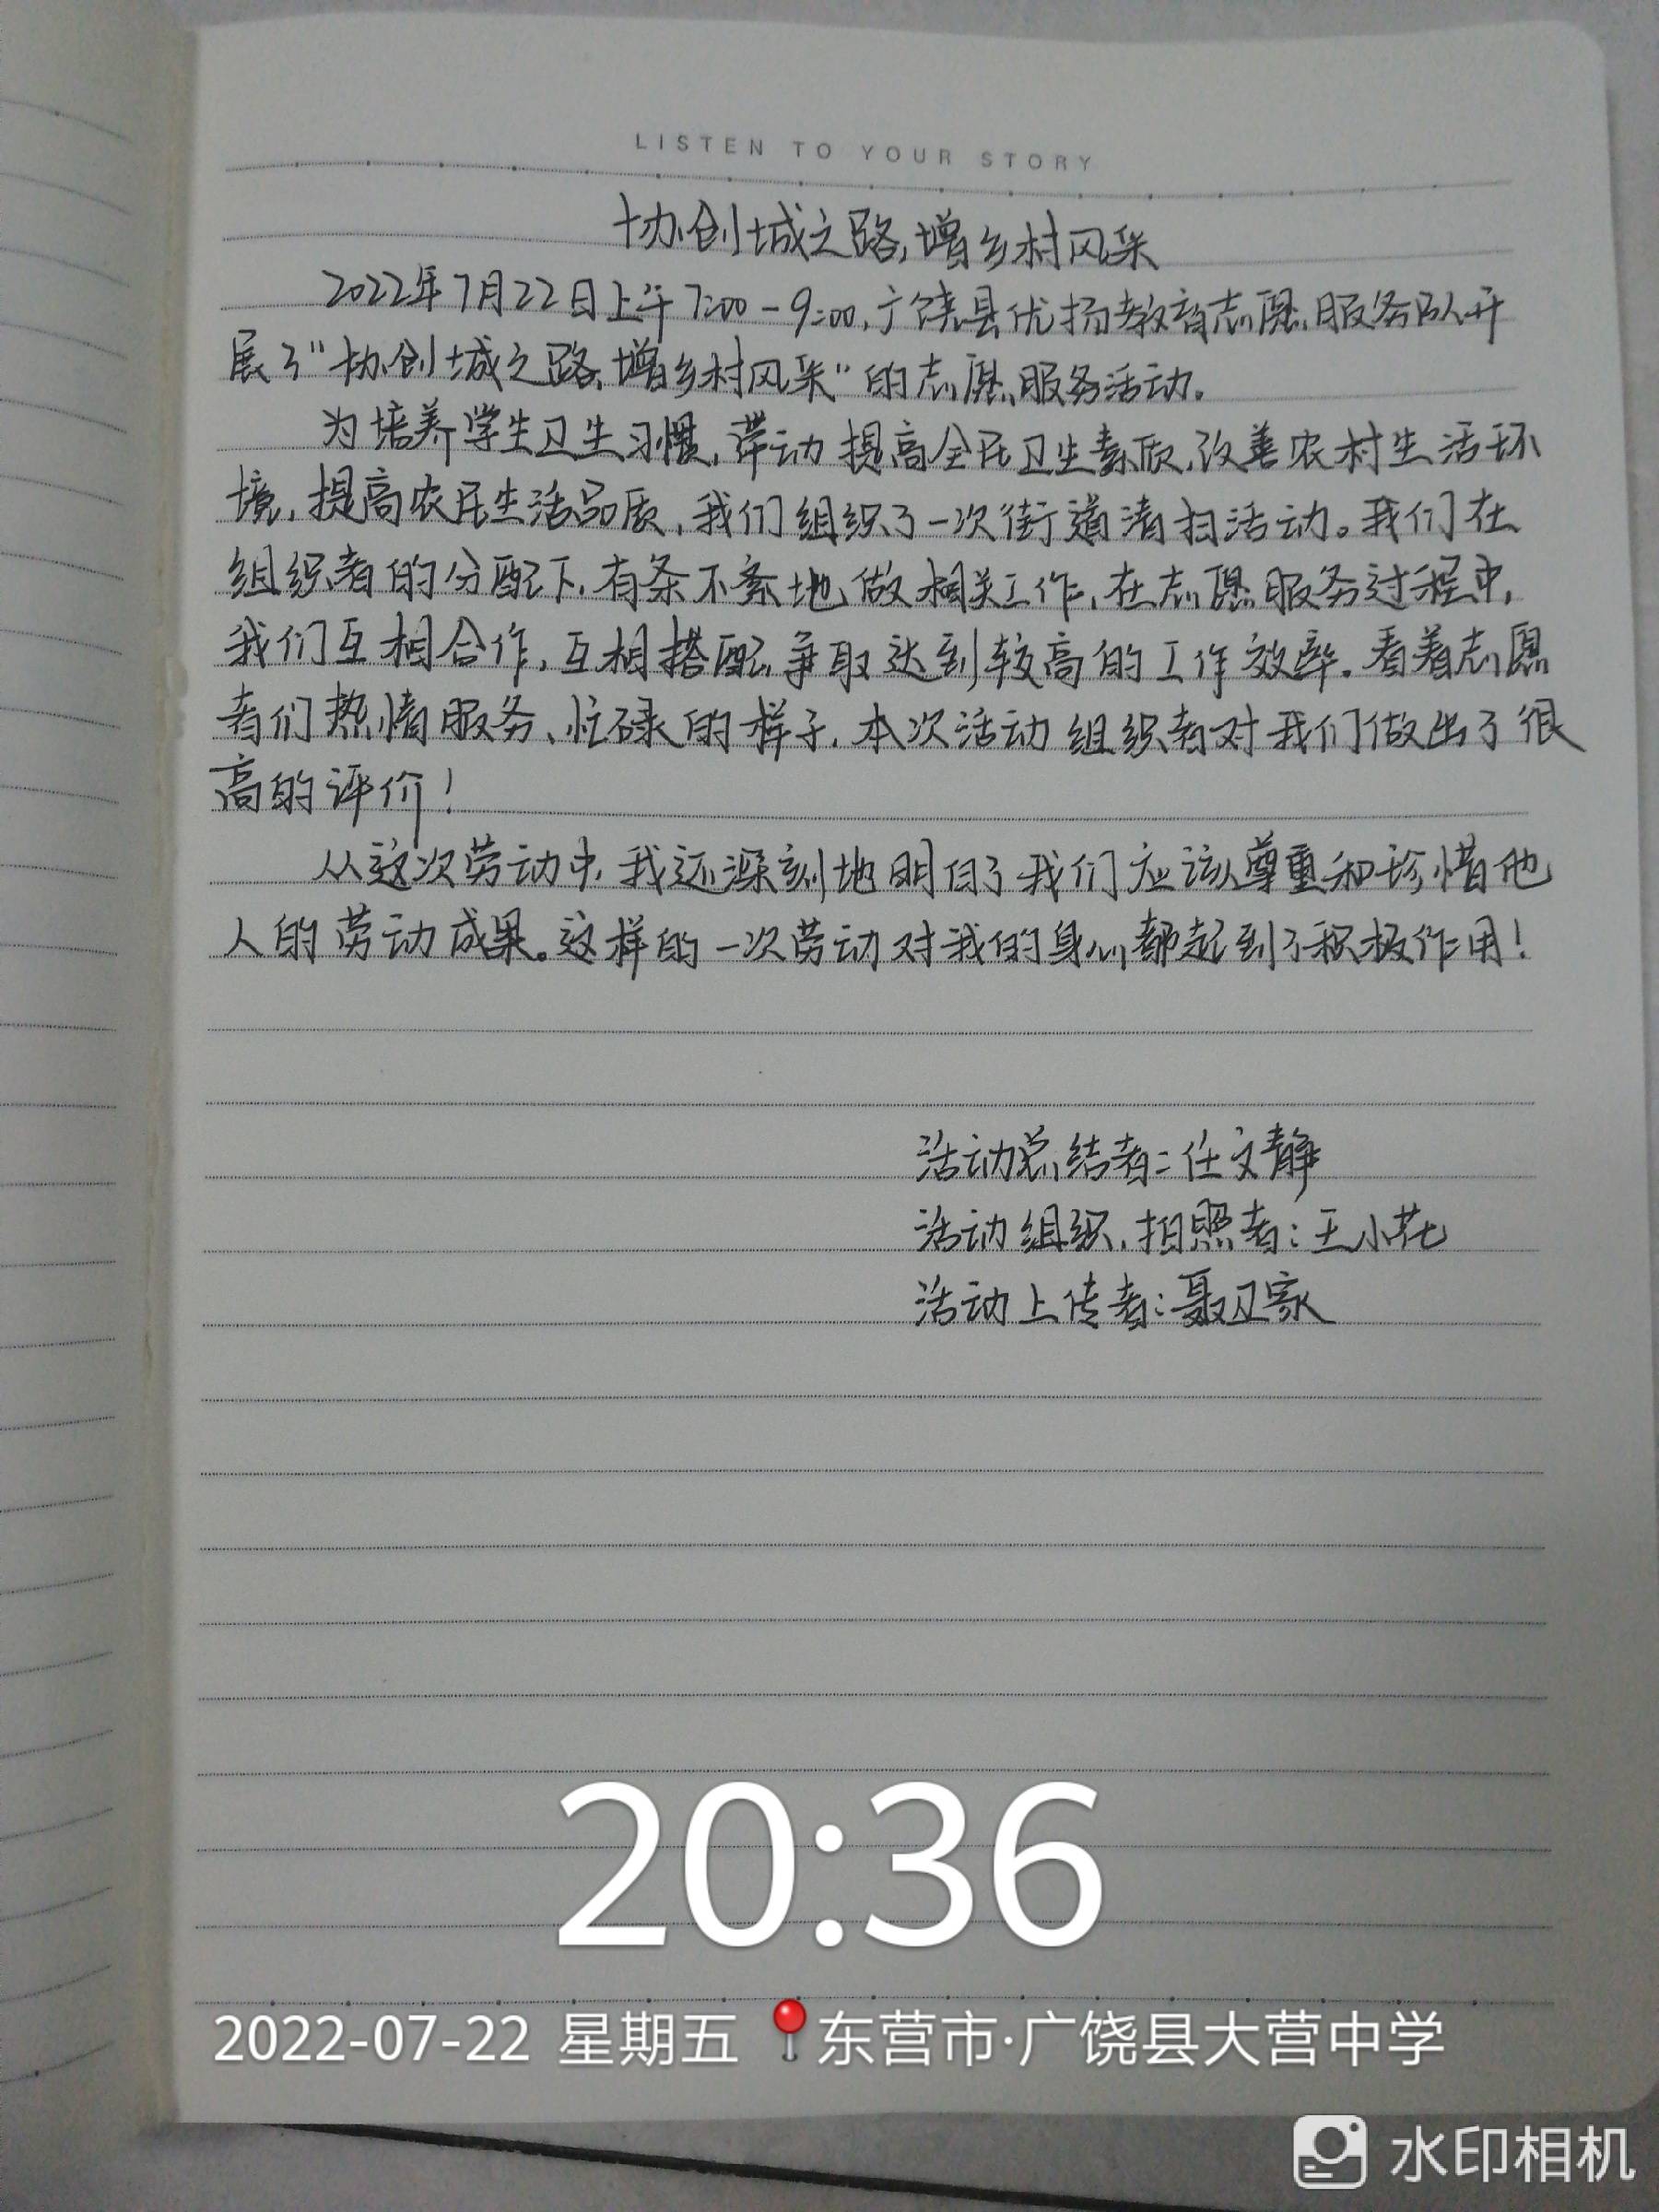 LISTEN TO YOUR STORY
协创城之路,增乡村风采
2022年7月22日上午7:00-9:00,广饶县优扬教育志愿服务队开
展了"协创城之路,增乡村风采"的志愿服务活动.
为培养学生卫生习惯,带动提高全民卫生素质,改善农村生活环
境,提高农民生活品质,我们组织了一次街道清扫活动。我们在
组织者的分配下,有条不紊地做相关工作,在志愿服务过程中,
我们互相合作,互相搭配,争取达到较高的工作效率.看着志愿
者们热情服务、忙碌的样子,本次活动组织者对我们做出了很
高的评价!
从这次劳动中,我还深刻地明白了我们应该尊重和珍惜他
人的劳动成果。这样的一次劳动对我的身心都起到了积极作用!
活动总结者:任文静
活动组织,拍照者:王小花
活动上传者:聂卫家
20:36
2022-07-22 星期五 东营市·广饶县大营中学
水印相机